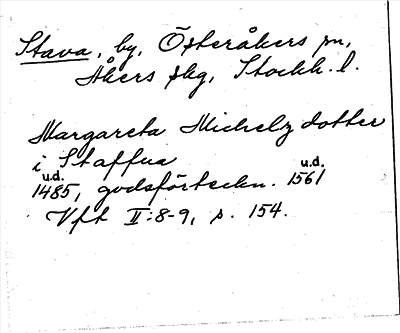 Stava, by, Österåkers sn,
Åkers skg, Stockh. l.
Margareta Michelz dotter
i Staffua
u.d. u.d.
1485, godsförteckn. 1561
Vft II:8-9, s. 154.